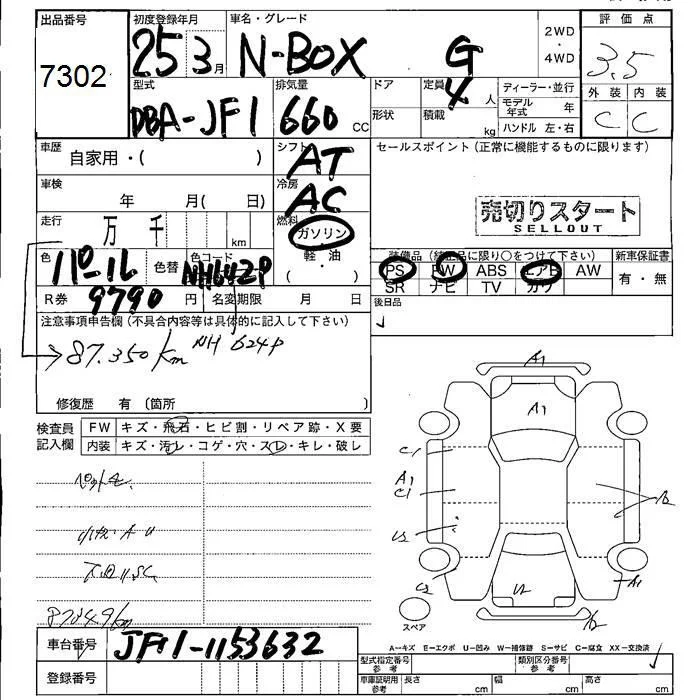 出品番号
7302
初度登録年月
25 3月
車名・グレード
N-BOX G
2WD
・
4WD
評価点
3.5
外装 内装
C C
型式
DBA-JF1
排気量
660 CC
ドア
形状
定員
4人
積載
kg
ディーラー・並行
モデル年式 年
ハンドル 左・右
車歴
自家用・( )
シフト
AT
セールスポイント(正常に機能するものに限ります)
売切りスタート
SELLOUT
車検
年 月( 日)
冷房
AC
走行
万 千 km
燃料
ガソリン
軽油
( )
色
パール
色替
色コード
R券
9790円
名変期限 月 日
装備品(純正品に限り○をつけて下さい)
PS PW ABS エアB AW
SR ナビ TV カワ
新車保証書
有・無
後日品
注意事項申告欄(不具合内容等は具体的に記入して下さい)
87.350km NH624P
修復歴 有(箇所 )
検査員記入欄
FW キズ・飛石・ヒビ割・リペア跡・X要
内装 キズ・汚レ・コゲ・穴・スレ・キレ・破レ
A1
A1
C1
A1
C1
U2
C2
A1
スペア
A−キズ E−エクボ U−凹み W−補修跡 S−サビ C−腐食 XX−交換済
車台番号
JF1-1153632
登録番号
型式指定番号
参考
類別区分番号
参考
車庫証明用
参考
長さ cm 幅 cm 高さ cm